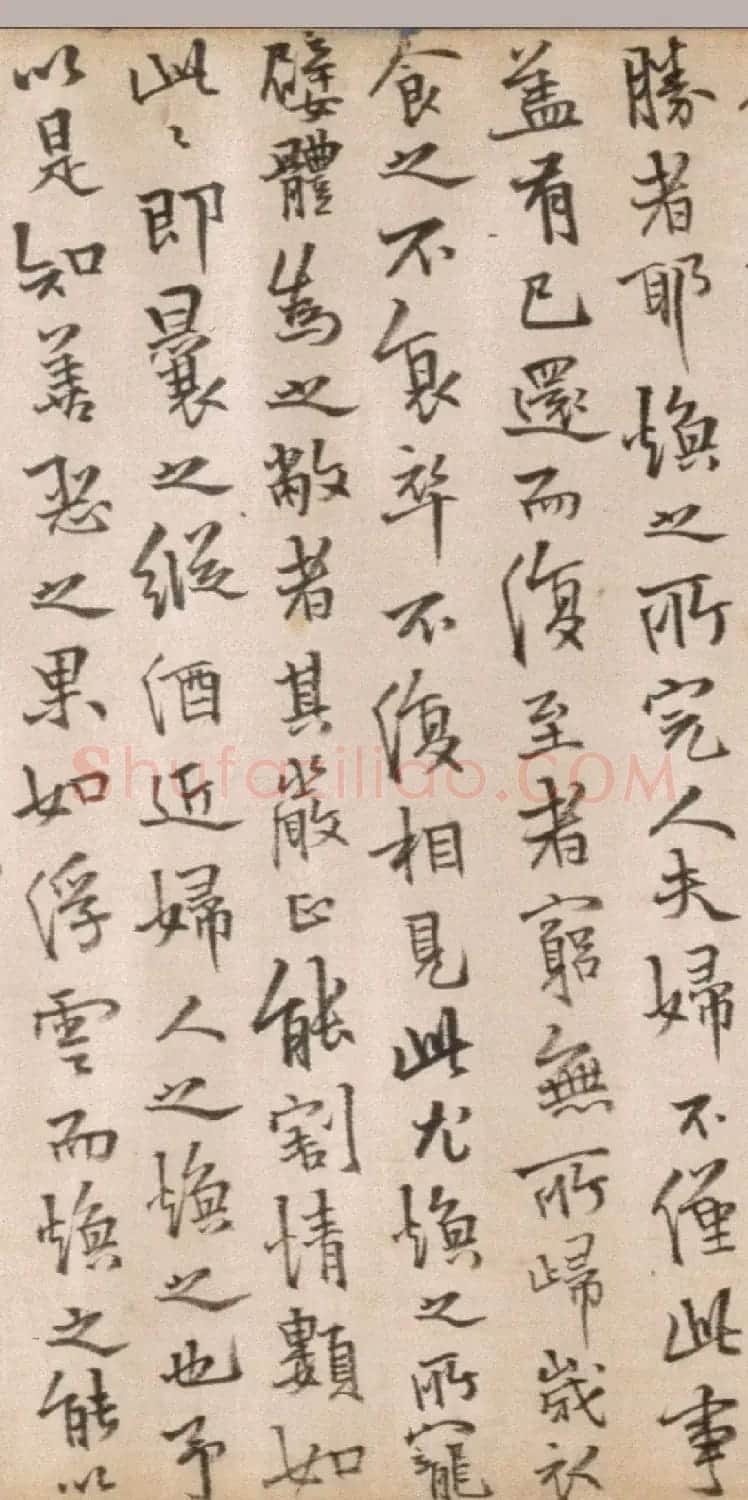 勝者耶煥之所完人夫婦不僅此事
盖有已還而復至者窮無所歸歲衣
食之不衰卒不復相見此尤煥之所寵
嬖體為之敝者其嚴正能割情類如
此〻即曩之縱酒近婦人之煥之也予
以是知善惡之果如浮雲而煥之能以
Shufaziliao.COM